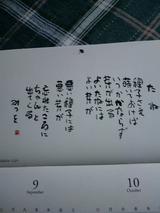 たね
種子さえ
蒔いておけば
いつかかならず
芽が出る
よいたねには
よい芽が
悪い種子には
悪い芽が
忘れたころに
ちゃんと
出てくる
みつを
9
September
10
October